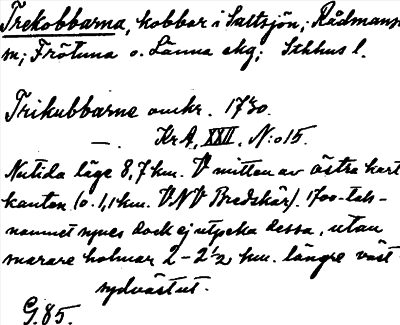 Trekobbarna, kobbar i Saltsjön; Rådmansö
m; Frötuna o. Länna skg; Sthlms l.
Trikubbarne omkr. 1730.
— . KrA, XXII, N:o 15.
Nutida läge 8,7 km. V mitten av östra kart
kanten (o. 1,1 km. VNV Bredskär). 1700-tals-
namnet synes dock ej utpeka dessa, utan
snarare holmar 2 - 2½ km. längre väst
sydvästut.
G. 85.